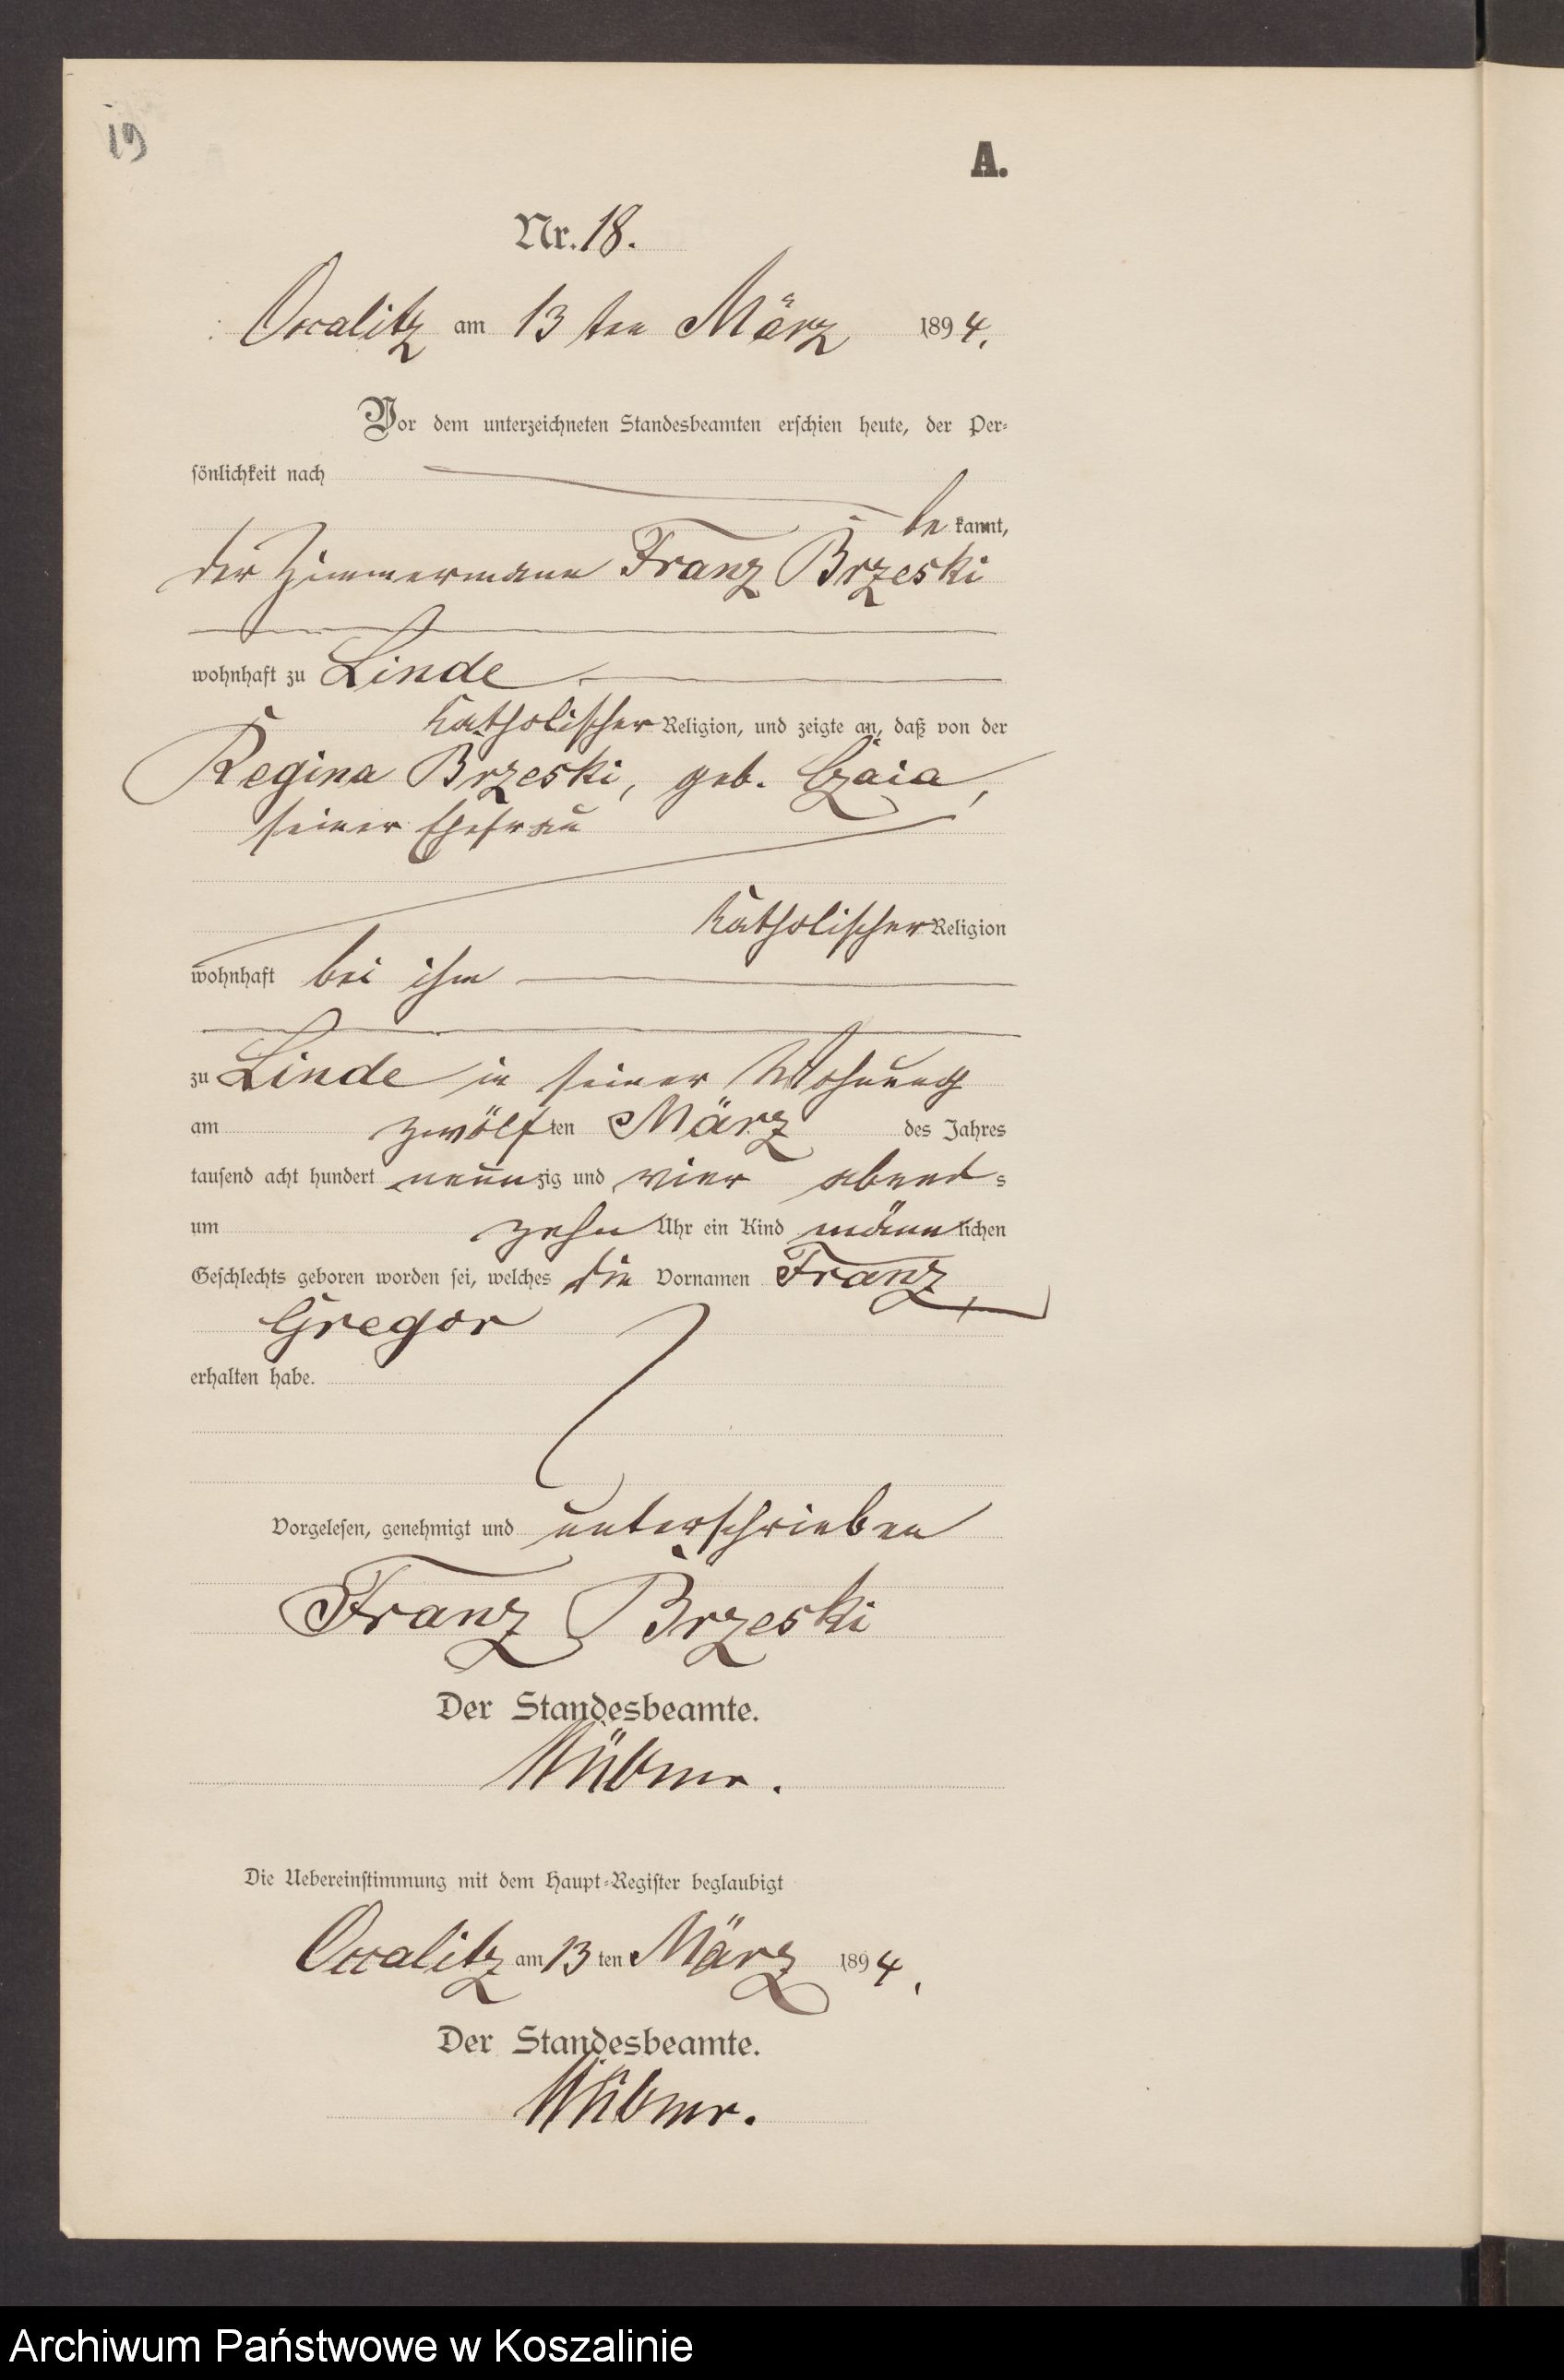 19
A.
Nr. 18.
Occalitz am 13ten März 1894.
Vor dem unterzeichneten Standesbeamten erschien heute, der Per-
sönlichkeit nach
be kannt,
der Zimmermann Franz Brzeski
wohnhaft zu Linde
katholischer Religion, und zeigte an, daß von der
Regina Brzeski, geb. Czaia,
seiner Ehefrau
katholischer Religion
wohnhaft bei ihm
zu Linde in seiner Wohnung
am zwölften März des Jahres
tausend acht hundert neunzig und vier abends
um zehn Uhr ein Kind männlichen
Geschlechts geboren worden sei, welches die Vornamen Franz
Gregor
erhalten habe.
Vorgelesen, genehmigt und unterschrieben
Franz Brzeski
Der Standesbeamte.
Die Uebereinstimmung mit dem Haupt-Register beglaubigt
Occalitz am 13ten März 1894.
Der Standesbeamte.
Archiwum Państwowe w Koszalinie